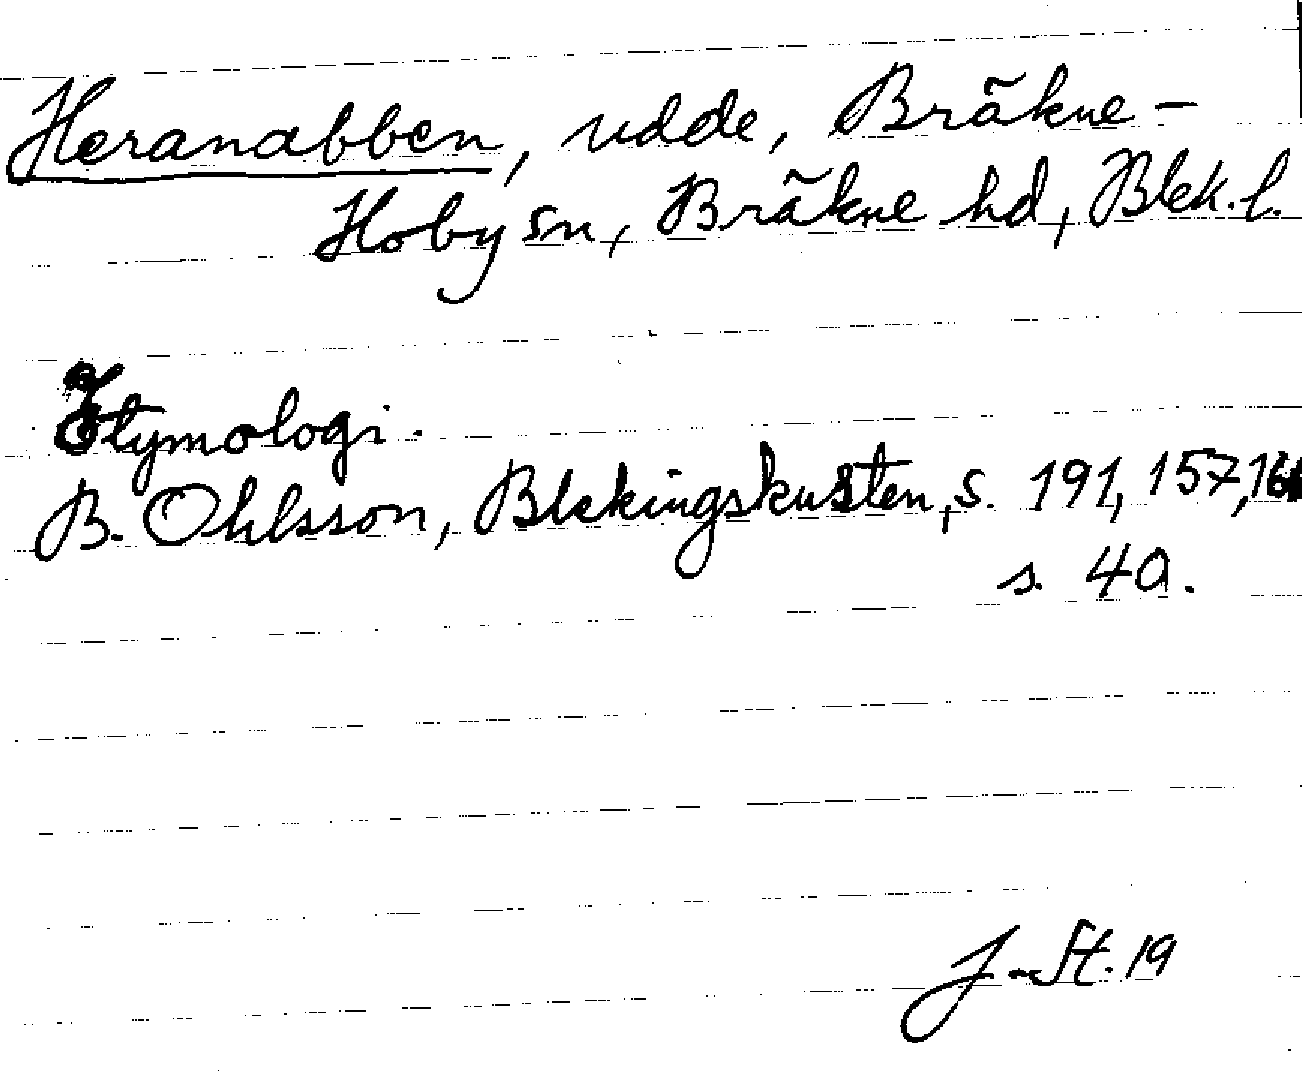 Heranabben, udde, Bräkne-
Hoby sn, Bräkne hd, Blek. l.
Etymologi.
B. Ohlsson, Blekingskusten, s. 191, 157,
s. 40.